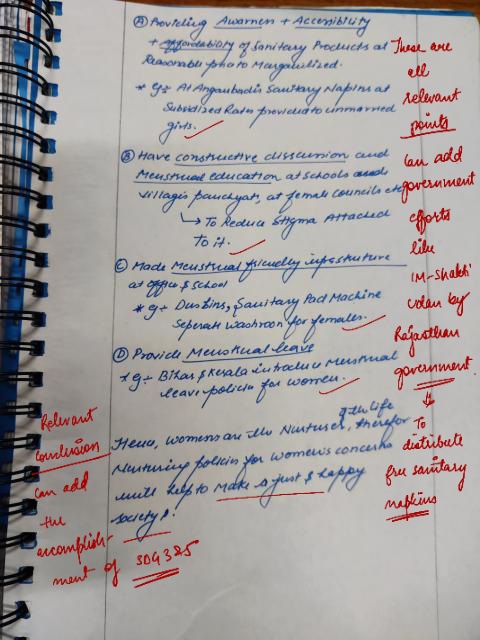 (A) Providing Awarness + Accessibility
+ affordability of Sanitary Products at
Reasonable price to Marganlized.
* eg:- At Anganbadis Sanitary Napins at
Subsidized Rates provided to unmarried
girls.
(B) Have constructive discussion and
Menstrual education at schools and
villagis panchyat, at female councils etc
↳ To Reduce Stigma Attached
To it.
(C) Made Menstrual friendly infrastruture
at office & school
* eg:- Dustbins, Sanitary Pad Machine
Seperate washroom for females.
(D) Provide Menstrual leave
* eg:- Bihar & Kerala introduce Menstrual
leave policies for women.
Hence, women are the Nurturer of the life, therefor
Nurturing policies for women's concerns
will help to Make a just & happy
society.
These are
all
relevant
points
Can add
government
efforts
like
IM-Shakti
Udan by
Rajasthan
government.
↓
To
distribute
free sanitary
napkins
Relevant
conclusion
can add
the
accomplish-
ment of SDG 3 & 5